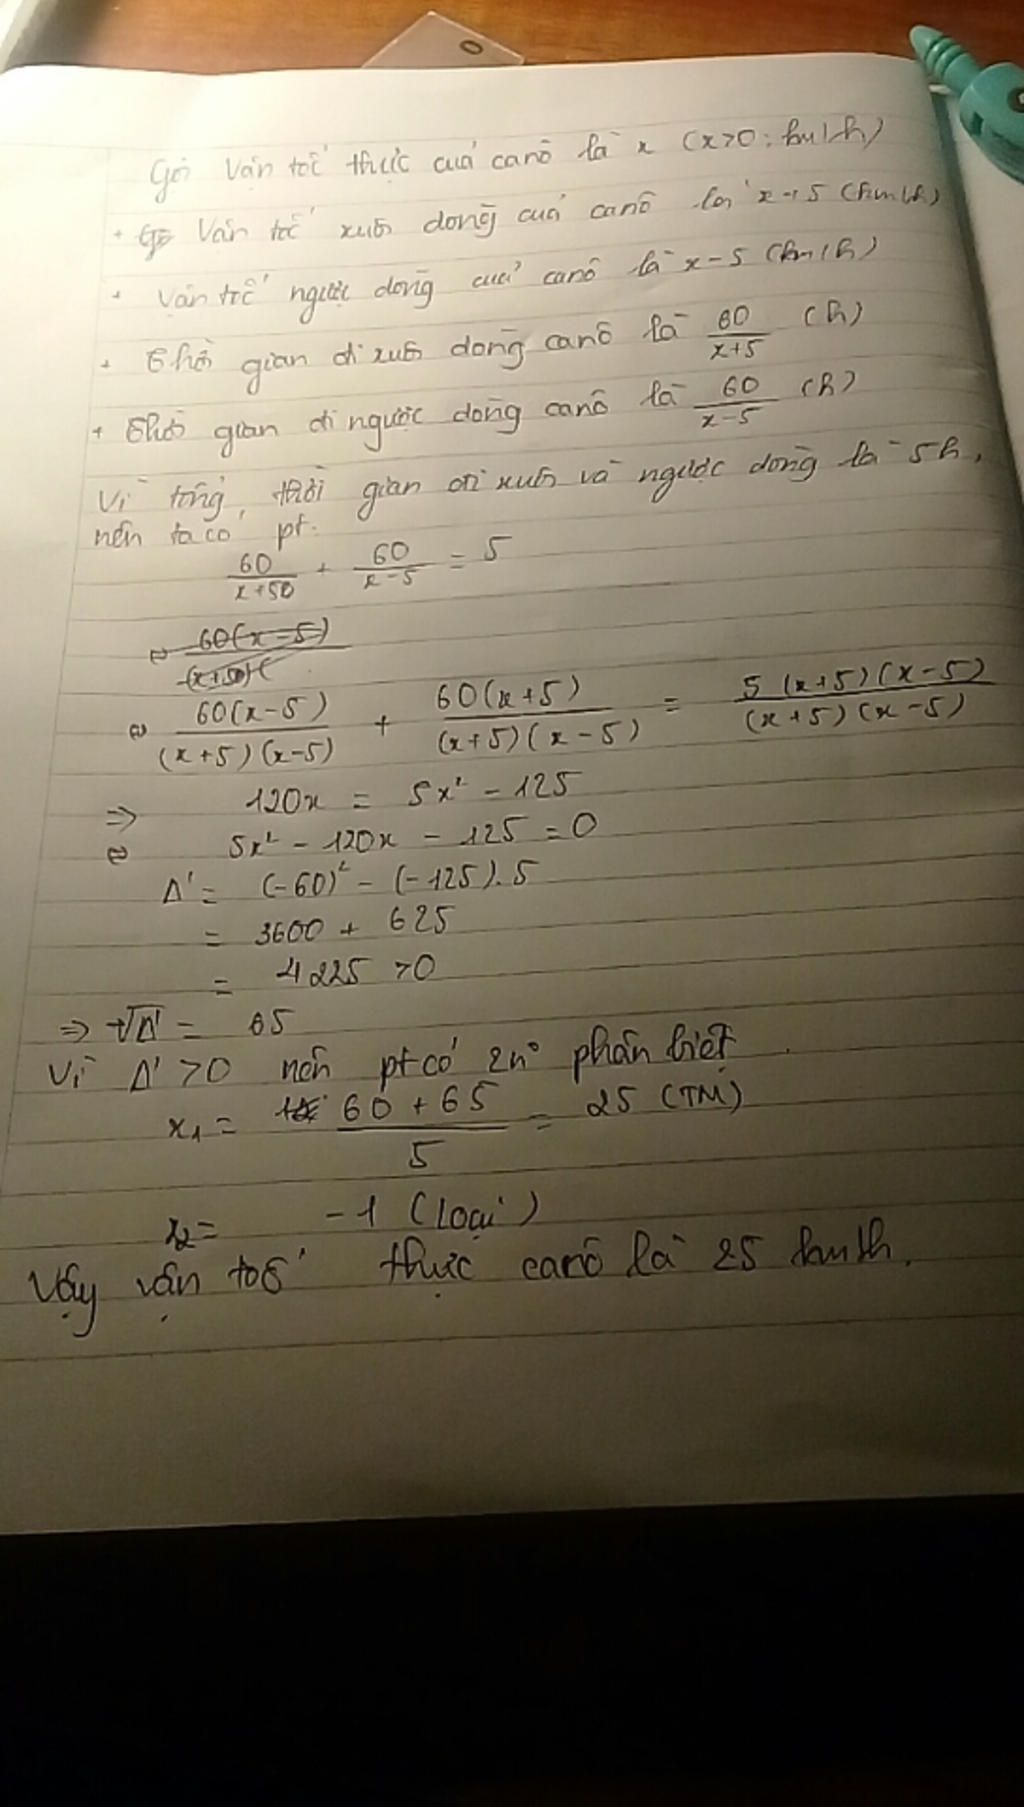 Gọi Vận tốc thực của canô là x (x>0; km/h)
+ Vận tốc xuôi dòng của canô là x+5 (km/h)
+ Vận tốc ngược dòng của canô là x-5 (km/h)
+ Thời gian đi xuôi dòng canô là 60/(x+5) (h)
+ Thời gian đi ngược dòng canô là 60/(x-5) (h)
Vì tổng thời gian đi xuôi và ngược dòng là 5h,
nên ta có pt.
60/(x+50) + 60/(x-5) = 5
⇔ 60(x-5)/(x+50)(
⇔ 60(x-5)/((x+5)(x-5)) + 60(x+5)/((x+5)(x-5)) = 5(x+5)(x-5)/((x+5)(x-5))
⇒ 120x = 5x² - 125
⇔ 5x² - 120x - 125 = 0
Δ' = (-60)² - (-125).5
= 3600 + 625
= 4225 >0
⇒ √Δ' = 65
Vì Δ' >0 nên pt có 2n° phân biệt
x₁ = (60 + 65)/5 = 25 (TM)
x₂ = -1 (loại)
Vậy vận tốc thực canô là 25 km/h.